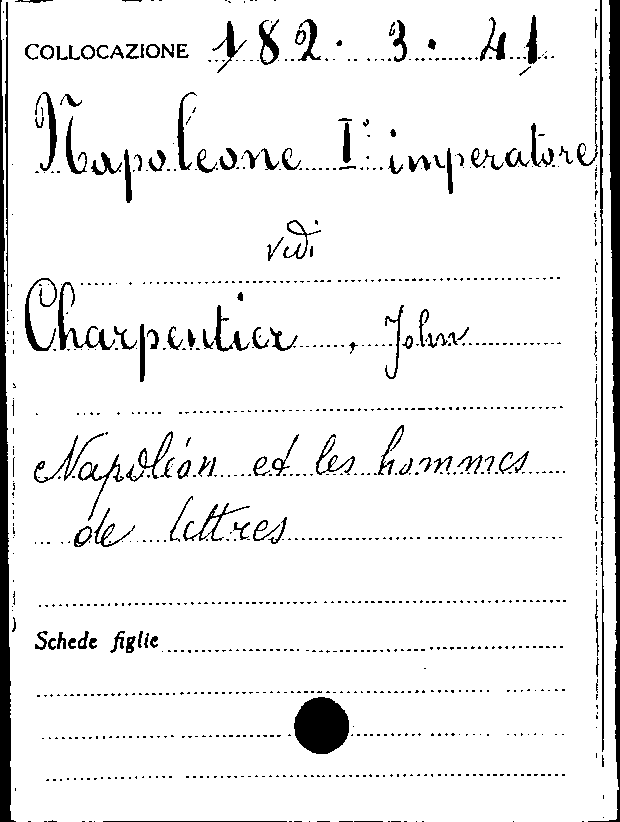 COLLOCAZIONE 182. 3. 41
Napoleone I° imperatore
vedi
Charpentier, John
Napoléon et les hommes
de lettres
Schede figlie